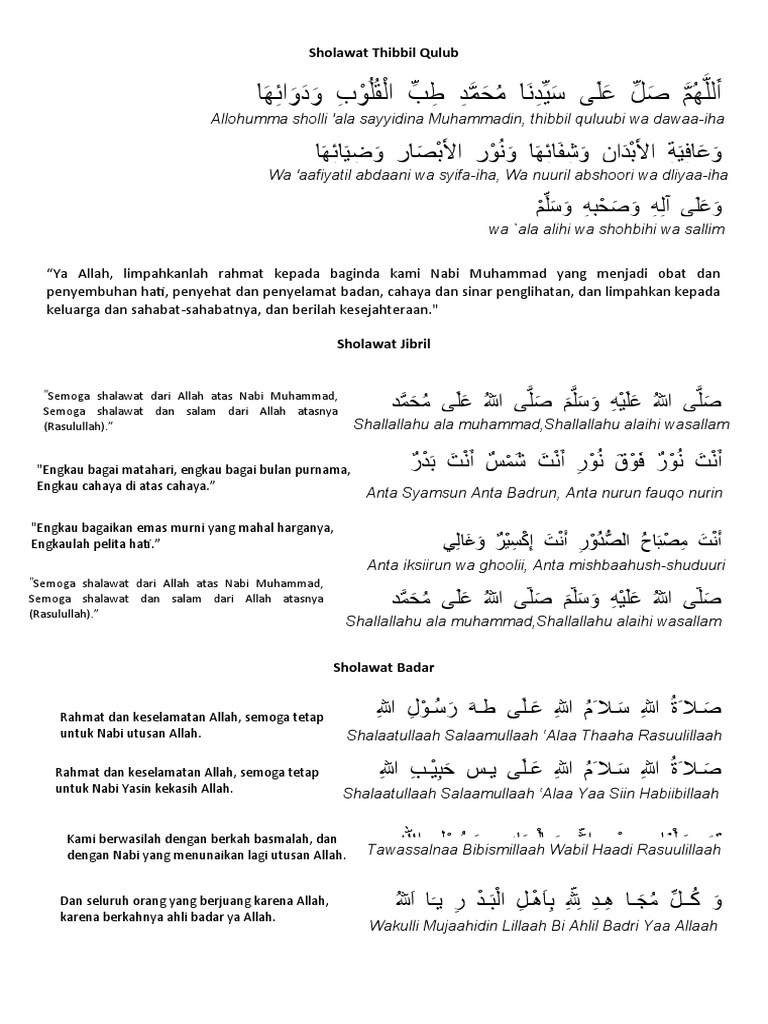 Sholawat Thibbil Qulub
اَللَّهُمَّ صَلِّ عَلَى سَيِّدِنَا مُحَمَّدٍ طِبِّ الْقُلُوْبِ وَدَوَائِهَا
Allohumma sholli 'ala sayyidina Muhammadin, thibbil quluubi wa dawaa-iha
وَعَافِيَةِ الأَبْدَانِ وَشِفَائِهَا وَنُوْرِ الأَبْصَارِ وَضِيَائِهَا
Wa 'aafiyatil abdaani wa syifa-iha, Wa nuuril abshoori wa dliyaa-iha
وَعَلَى آلِهِ وَصَحْبِهِ وَسَلِّمْ
wa `ala alihi wa shohbihi wa sallim
“Ya Allah, limpahkanlah rahmat kepada baginda kami Nabi Muhammad yang menjadi obat dan
penyembuhan hati, penyehat dan penyelamat badan, cahaya dan sinar penglihatan, dan limpahkan kepada
keluarga dan sahabat-sahabatnya, dan berilah kesejahteraan."
Sholawat Jibril
"Semoga shalawat dari Allah atas Nabi Muhammad,
Semoga shalawat dan salam dari Allah atasnya
(Rasulullah).”
صَلَّى اللهُ عَلَيْهِ وَسَلَّمَ صَلَّى اللهُ عَلَى مُحَمَّد
Shallallahu ala muhammad,Shallallahu alaihi wasallam
"Engkau bagai matahari, engkau bagai bulan purnama,
Engkau cahaya di atas cahaya.”
أَنْتَ نُوْرٌ فَوْقَ نُوْرِ أَنْتَ شَمْسٌ أَنْتَ بَدْرٌ
Anta Syamsun Anta Badrun, Anta nurun fauqo nurin
"Engkau bagaikan emas murni yang mahal harganya,
Engkaulah pelita hati.”
أَنْتَ مِصْبَاحُ الصُّدُوْرِ أَنْتَ إِكْسِيْرٌ وَغَالِي
Anta iksiirun wa ghoolii, Anta mishbaahush-shuduuri
"Semoga shalawat dari Allah atas Nabi Muhammad,
Semoga shalawat dan salam dari Allah atasnya
(Rasulullah).”
صَلَّى اللهُ عَلَيْهِ وَسَلَّمَ صَلَّى اللهُ عَلَى مُحَمَّد
Shallallahu ala muhammad,Shallallahu alaihi wasallam
Sholawat Badar
Rahmat dan keselamatan Allah, semoga tetap
untuk Nabi utusan Allah.
صَلاَةُ اللهِ سَلاَمُ اللهِ عَلَى طهَ رَسُوْلِ اللهِ
Shalaatullaah Salaamullaah ‘Alaa Thaaha Rasuulillaah
Rahmat dan keselamatan Allah, semoga tetap
untuk Nabi Yasin kekasih Allah.
صَلاَةُ اللهِ سَلاَمُ اللهِ عَلَى يس حَبِيْبِ اللهِ
Shalaatullaah Salaamullaah ‘Alaa Yaa Siin Habiibillaah
Kami berwasilah dengan berkah basmalah, dan
dengan Nabi yang menunaikan lagi utusan Allah.
Tawassalnaa Bibismillaah Wabil Haadi Rasuulillaah
Dan seluruh orang yang berjuang karena Allah,
karena berkahnya ahli badar ya Allah.
وَ كُلِّ مُجَا هِدِ لِلَّهِ بِاَهْلِ الْبَدْ رِ يَا اَللهُ
Wakulli Mujaahidin Lillaah Bi Ahlil Badri Yaa Allaah